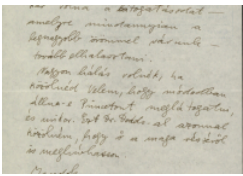 vas volna a látogatásodat —
amelyre mindannyian a
legnagyobb örömmel várunk —
tovább elhalasztani.
Nagyon hálás volnék, ha
közölnéd velem, hogy módodban
állna-e Princetont meglátogatni,
és mikor. Ezt Dr. -al azonnal
közölném, hogy ő a maga részéről
is meghívhasson.